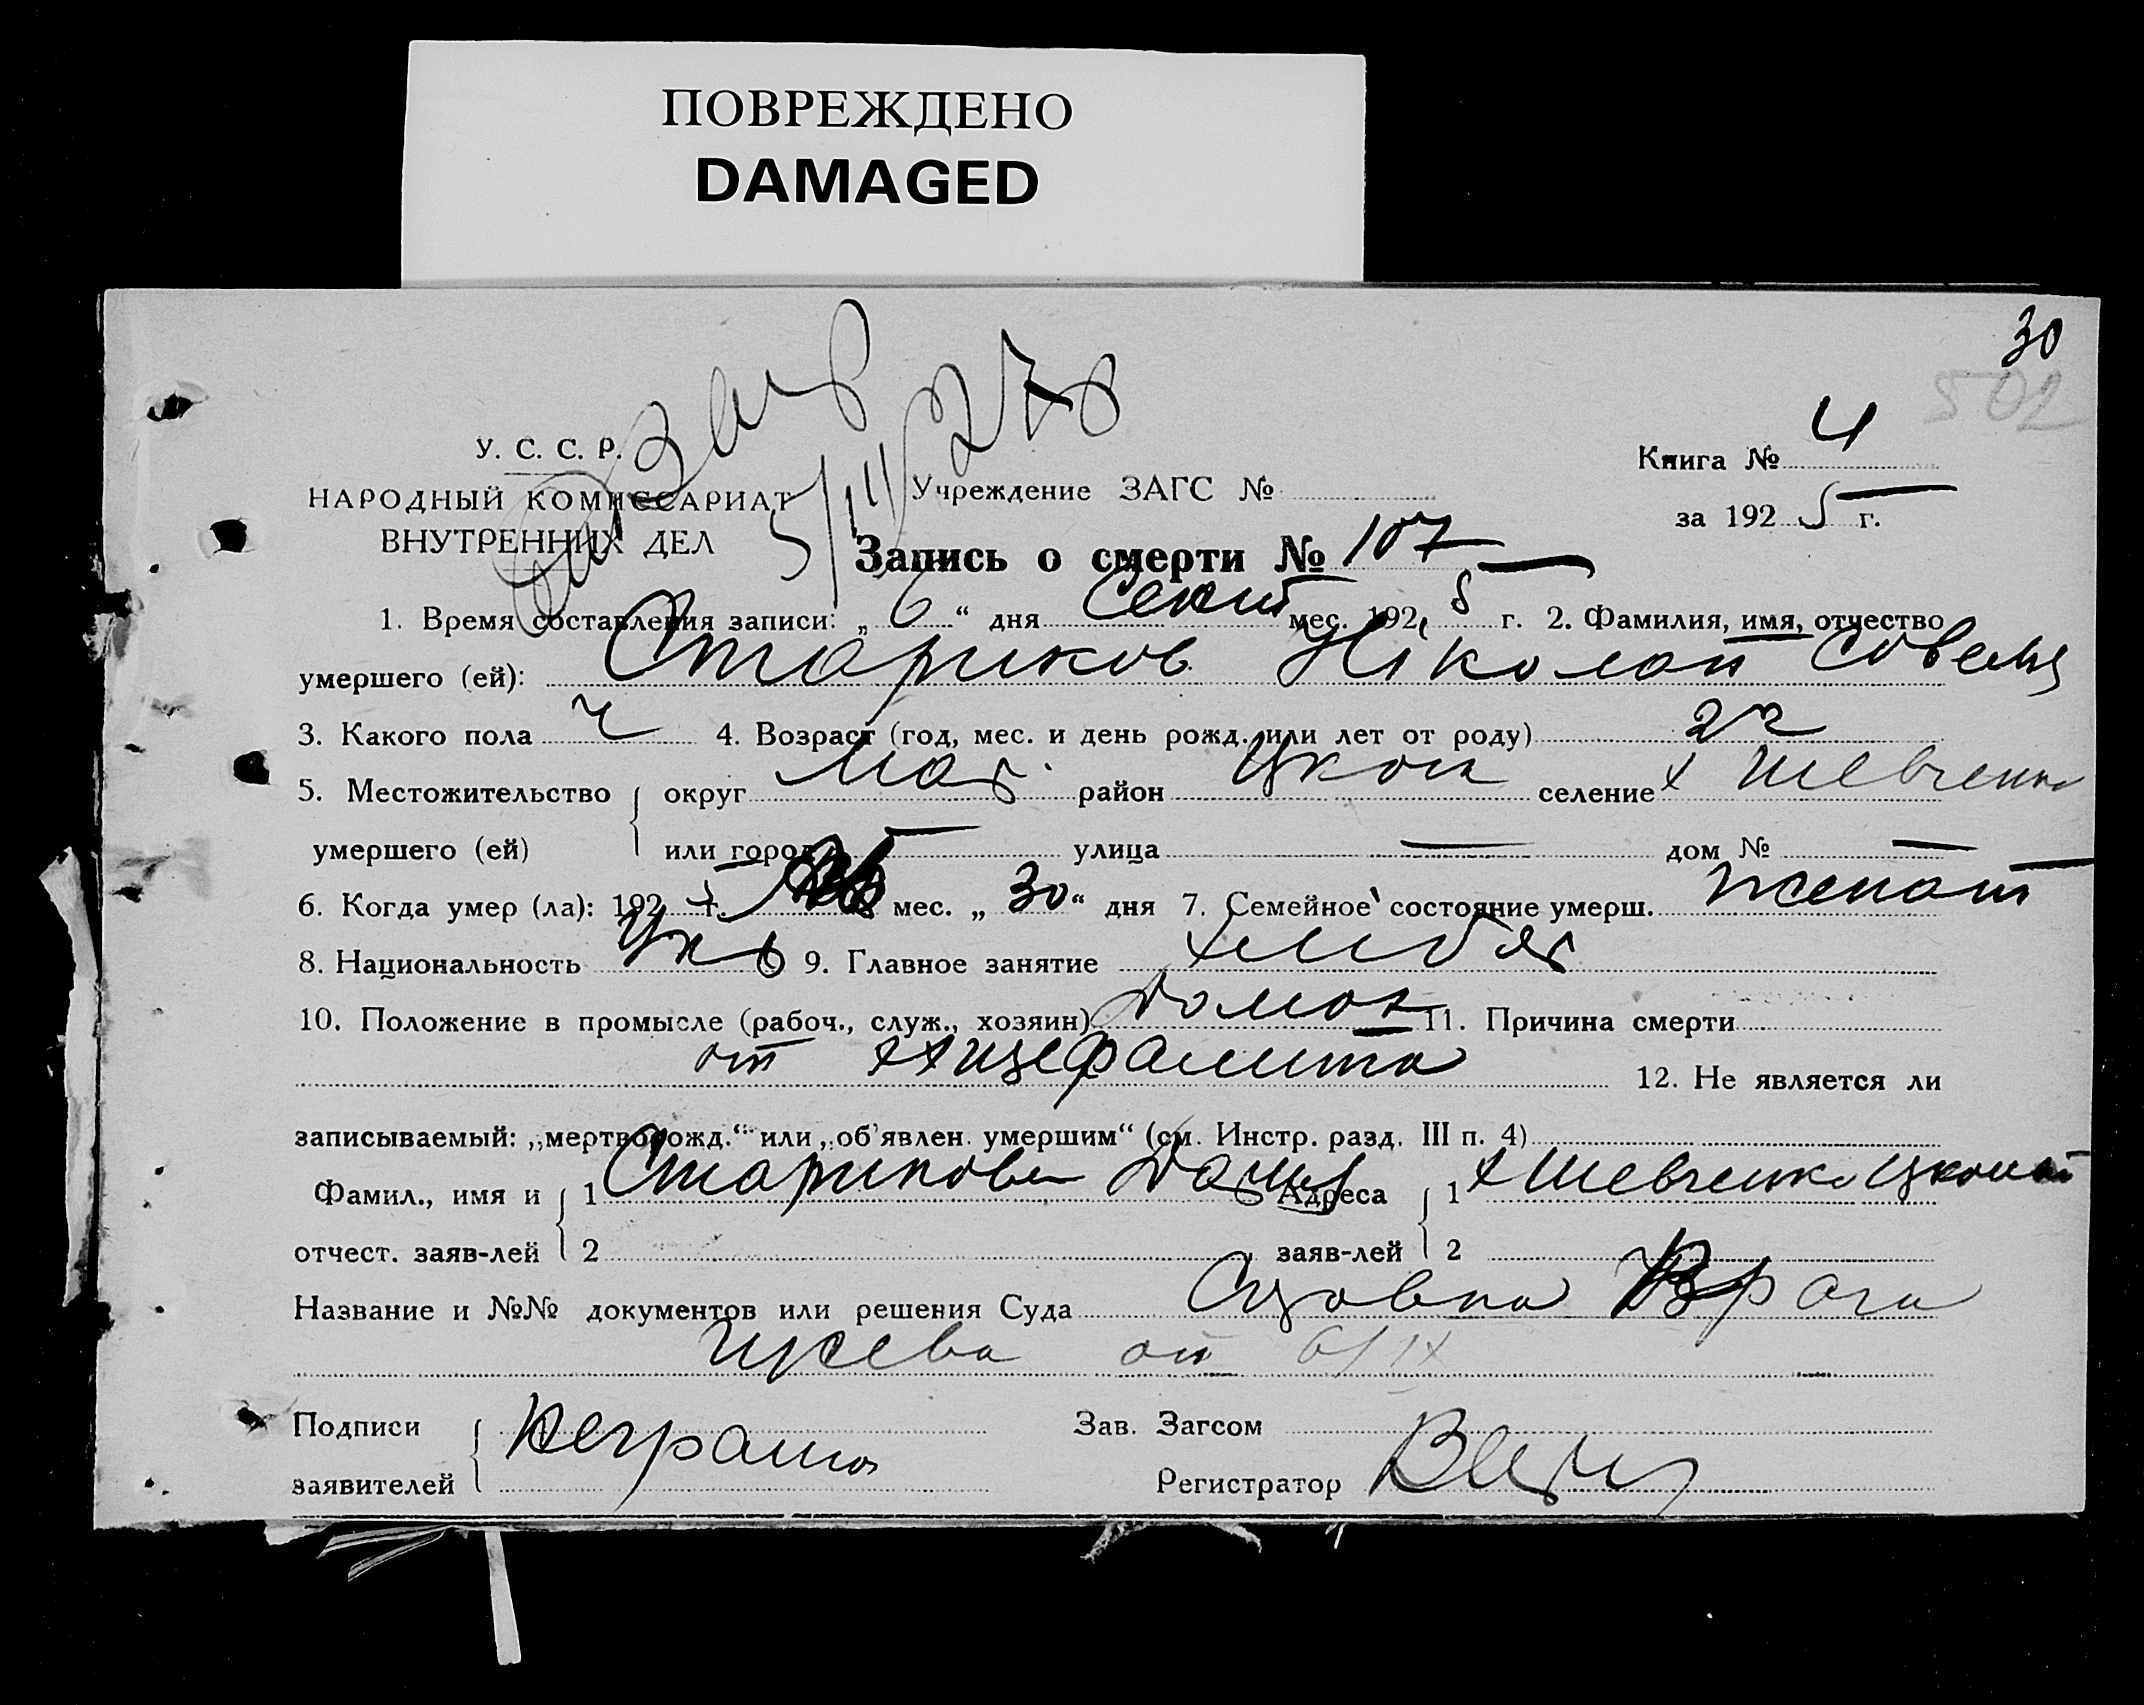 ПОВРЕЖДЕНО
DAMAGED
30
502
У. С. С. Р.
НАРОДНЫЙ КОМИССАРИАТ
ВНУТРЕННИХ ДЕЛ
5/III 27
Учреждение ЗАГС №
Книга № 4
за 1925 г.
Запись о смерти № 107
1. Время составления записи: „6“ дня Сент мес. 1925 г. 2. Фамилия, имя, отчество
умершего (ей): Стариков Николай Савель
3. Какого пола ч 4. Возраст (год, мес. и день рожд. или лет от роду) 22
5. Местожительство округ район селение х Шевченко
умершего (ей) или город — улица — дом № —
6. Когда умер (ла): 1925 г. мес. „30“ дня 7. Семейное состояние умерш. женат
8. Национальность Укр 9. Главное занятие хлибор
10. Положение в промысле (рабоч., служ., хозяин) 11. Причина смерти
от Энцефалита 12. Не является ли
записываемый: „мертворожд.“ или „об'явлен. умершим“ (см. Инстр. разд. III п. 4)
Фамил., имя и 1 Старикова Адреса 1 х Шевченко
отчест. заяв-лей 2 заяв-лей 2
Название и №№ документов или решения Суда Справка Врача
от 6/IX
Подписи Неграмот Зав. Загсом
заявителей Регистратор